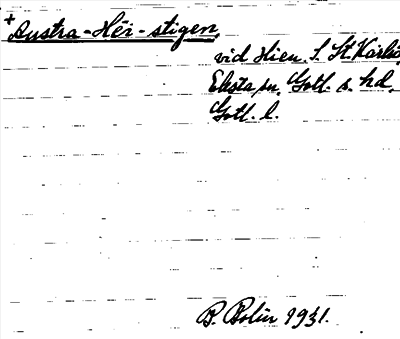 +
Austra-Hér-stigen,
vid Hien. S. St. Karlsö,
Eksta sn. Gotl. s. hd,
Gotl. l.
B. Bolin 1931.